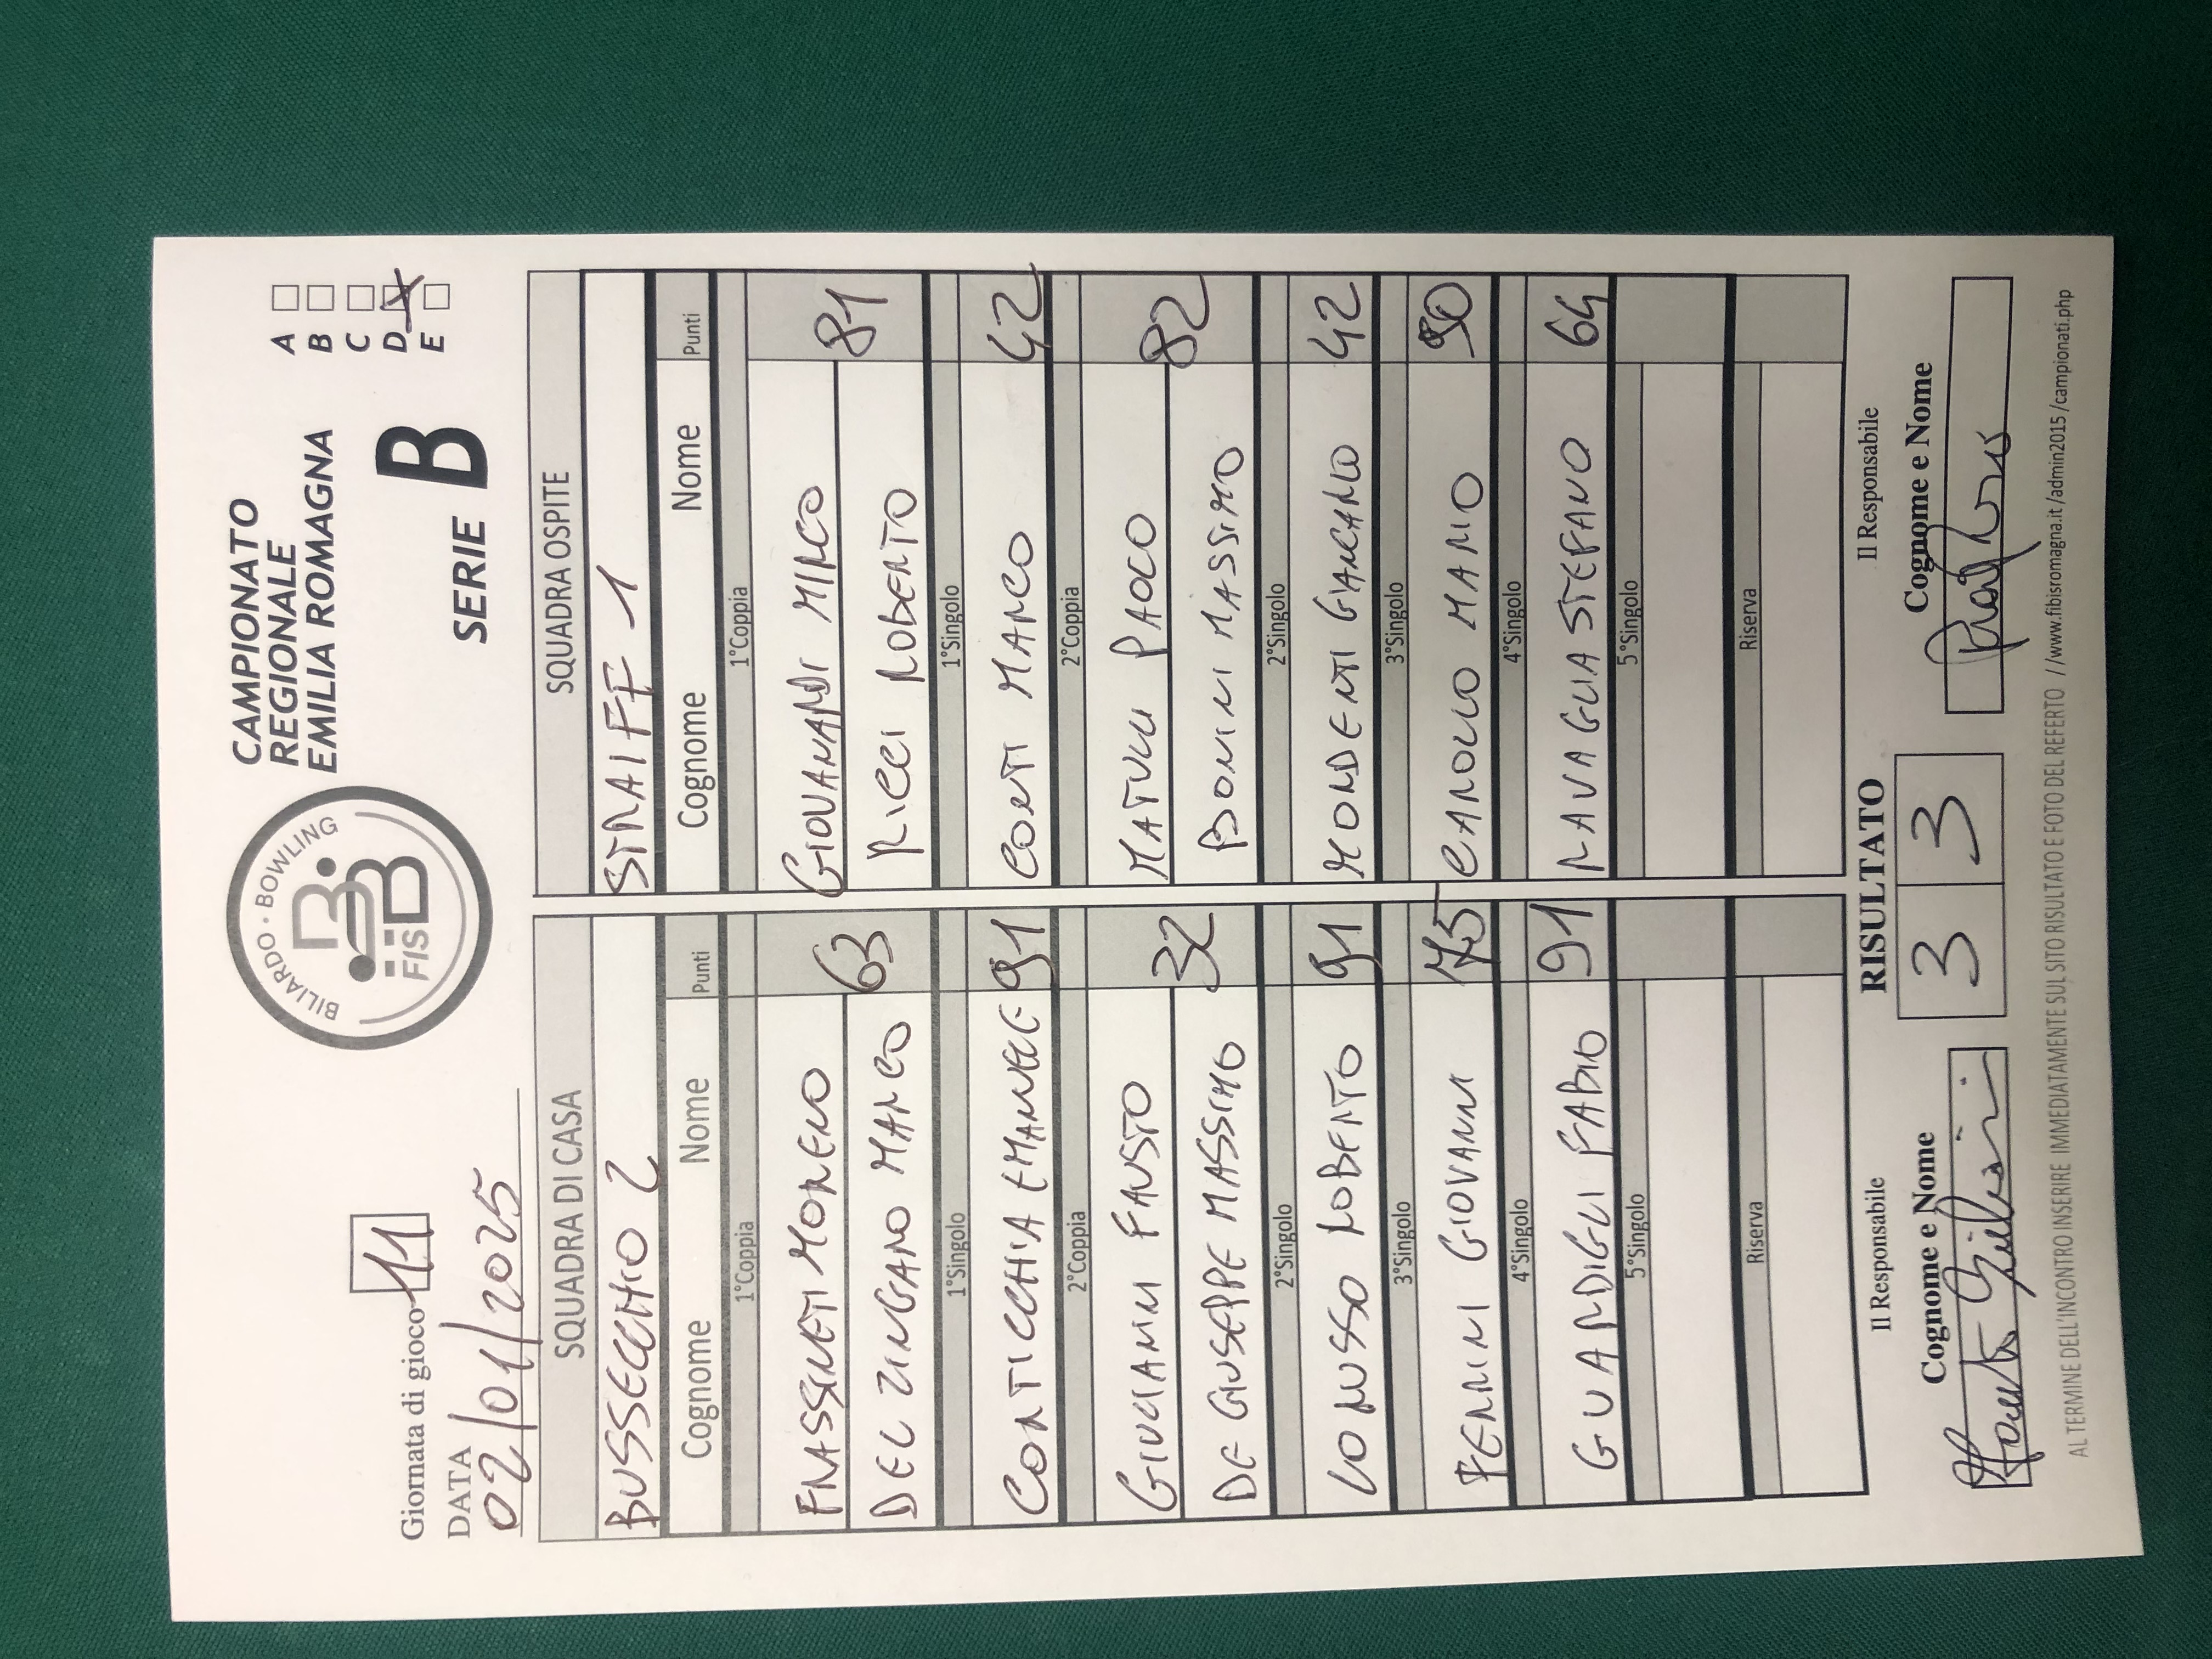 BILIARDO • BOWLING
FISBB
CAMPIONATO
REGIONALE
EMILIA ROMAGNA
A
B
C
D X
E
SERIE B
Giornata di gioco 11
DATA
02/01/2025
SQUADRA DI CASA SQUADRA OSPITE
BUSSECCHIO 2 STRAIFF 1
Cognome Nome Punti Cognome Nome Punti
1°Coppia 1°Coppia
FRASSINETI MORENO GIOVANARDI MIRCO
63 81
DEL ZINGARO MARCO RICCI ROBERTO
1°Singolo 1°Singolo
CORTICCHIA EMANUELE 91 CONTI MARCO 42
2°Coppia 2°Coppia
GIULIANI FAUSTO MATULI PAOLO
32 82
DE GIUSEPPE MASSIMO BONINI MASSIMO
2°Singolo 2°Singolo
LO RUSSO ROBERTO 91 MONDENTI GIANCARLO 42
3°Singolo 3°Singolo
FERRINI GIOVANNI 75 CAROLLO MARIO 90
4°Singolo 4°Singolo
GUARDIGLI FABIO 91 RAVAGLIA STEFANO 64
5°Singolo 5°Singolo
Riserva Riserva
Il Responsabile RISULTATO Il Responsabile
Cognome e Nome 3 3 Cognome e Nome
AL TERMINE DELL'INCONTRO INSERIRE IMMEDIATAMENTE SUL SITO RISULTATO E FOTO DEL REFERTO //www.fibisromagna.it/admin2015/campionati.php